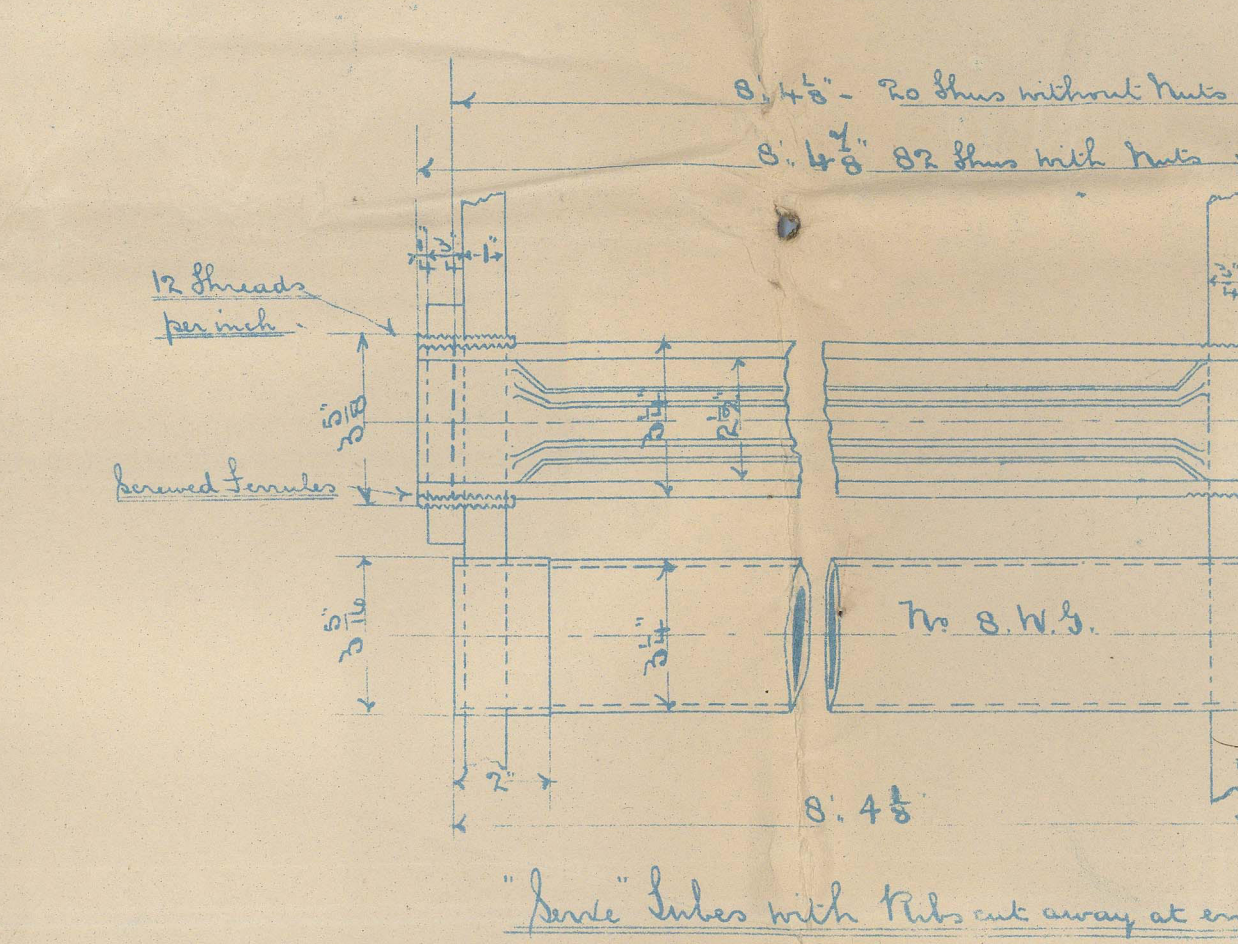 8'. 4⅛" - 20 Thus without Nuts
8'. 4⅞" 82 Thus with Nuts
¼" ¾" 1"
¾"
12 Threads
per inch.
3 5/8"
3¼"
2½"
Screwed Ferrules
3 5/16"
3¼"
No 8. W. G.
2"
8'. 4⅛"
"Serve" Tubes with Ribs cut away at en